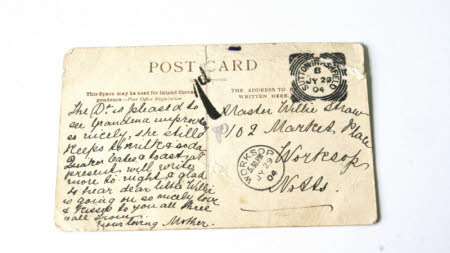 POST CARD
This Space may be used for Inland Corres-
pondence—Post Office Regulation
THE ADDRESS TO BE
WRITTEN HERE.
SUTTON-IN-ASHFIELD
8
JY 29
04
The Dr. is pleased to
see Grandma improve
so nicely, she still
keeps to milk & soda
Quaker Oates & toast at
present will write
more to night, a glad
to hear dear little Willie
is going on so nicely love
& kisses to you all three
all from
your loving Mother.
Master Willie Straw
102 Market Place
Worksop
Notts.
WORKSOP
JY 29
04